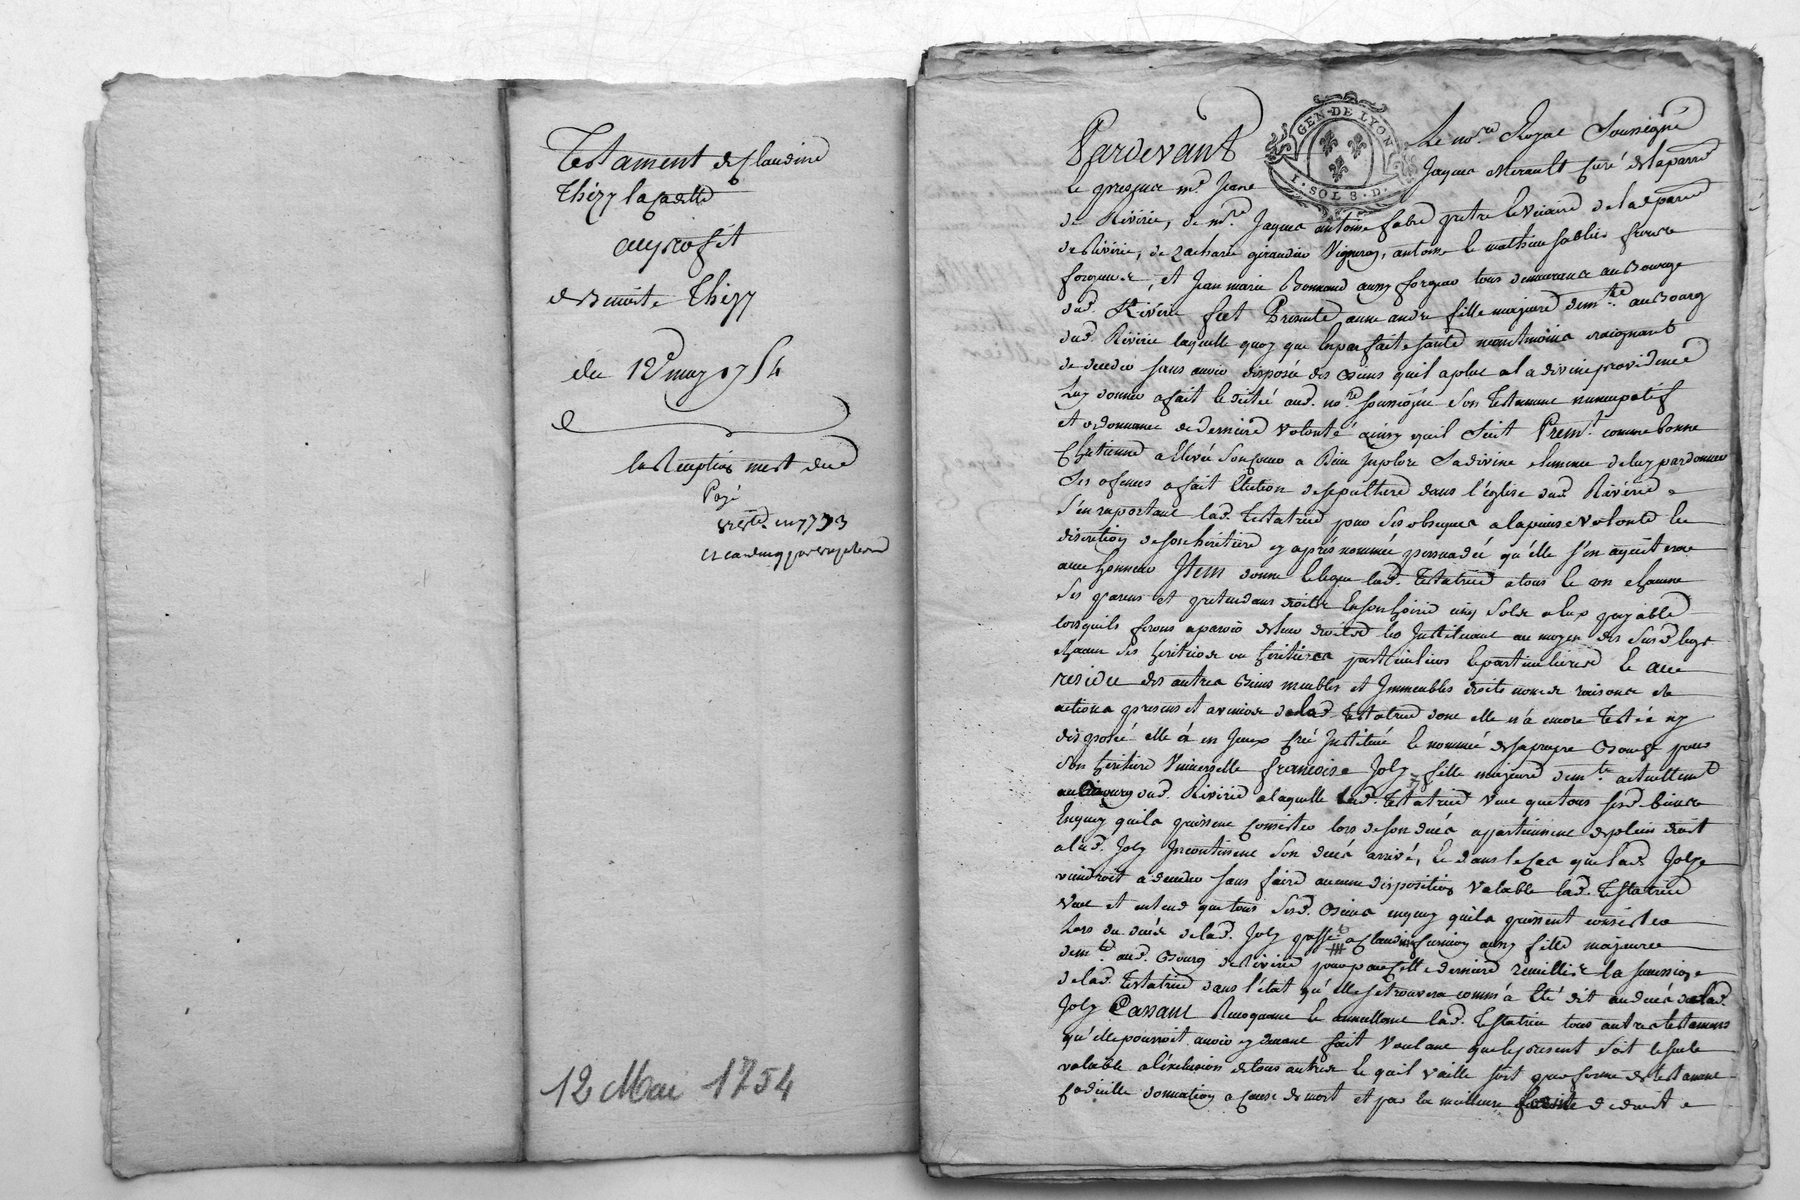 Testament de Claudine
Thizy la Cadette
au profit
de Benoite Thizy
du 12e may 1754
la Reception n'est due
Payé
en 1773
12 Mai 1754
GEN. DE LYON
1. SOL 8. D.
Pardevant Le nore Royal Soussigné
le presence mre Jacques Mirault Curé de la parre
de Riverie, de mre Jaques antoine fabre pretre le vicaire de lad parre
de Riverie, de Zacharie giraudier Vigneron, antoine le mathieu sablier freres
forgeurs, et Jean marie Bonnand aussy forgeur tous demeurance au Bourg
dud. Riverie fut Presente anne andre fille majeure demte au Bourg
dud. Riverie laquelle quoy que En parfaite santé neantmoins craignant
de deceder sans avoir disposée des Biens qu'il a plut a la divine providence
Luy donner a fait le dicté aud. nore soussigné son Testament nuncupatif
et ordonnance de derniere volonté ainsy quil suit Premt comme bonne
Chretienne a Elevée son Coeur a Dieu Imploré sa divine clemence de luy pardonner
ses ofences a fait Election de sepulture dans l'église dud. Riverie
s'en raportant lad. Testatrice pour ses obseques a la pieuse volonté le
discretion de son heritiere cy aprés nommée persuadée qu'elle s'en aquitera
avec honneur Item donne le legue lad. Testatrice a tous le un chacune
ses parens et pretendans droits En son hoirie cinq sols a Eux payable
lorsquils feront aparoir de leur droits les Instituant au moyen des susd. legs
chacun ses heritiers ou heritieres particuliers le particulieres le au
residu des autres Biens meubles et Immeubles droits noms raisons et
actions presens et avenirs de lad. Testatrice donc elle n'a encore Testée ny
disposée elle à en Iceux Créé Institué le nommée de sa propre Bouche pour
son heritiere Universelle francoise Joly fille majeure demte actuellement
au Bourg dud. Riverie a laquelle lad. Testatrice veut que tous sesd. biens
En quoy quils puissent Consister lors de son decés appartiennent de plein droit
a lad. Joly Incontinent son decés arrivé, le dans le cas que lad. Joly
viendroit a deceder sans faire aucune disposition valable lad. Testatrice
veut et entend que tous sesd. Biens en quoy quils puissent consister
Lors du decés de lad. Joly passent a Claudine aussy fille majeure
demte aud. Bourg de Riverie pour par Cette derniere recueillir la succession
de lad. Testatrice dans l'état qu'elle se trouvera comm'à Eté dit au decés de lad.
Joly Cassant Revoquant le annullant lad. Testatrice tous autres testamens
qu'elle pourroit avoir cy devant fait Voulant que le present soit le seule
valable a l'éxclusion de tous autres le quil vaille soit par forme de testament
Codicille donnation a Cause de mort et par la meilleure forme de droit